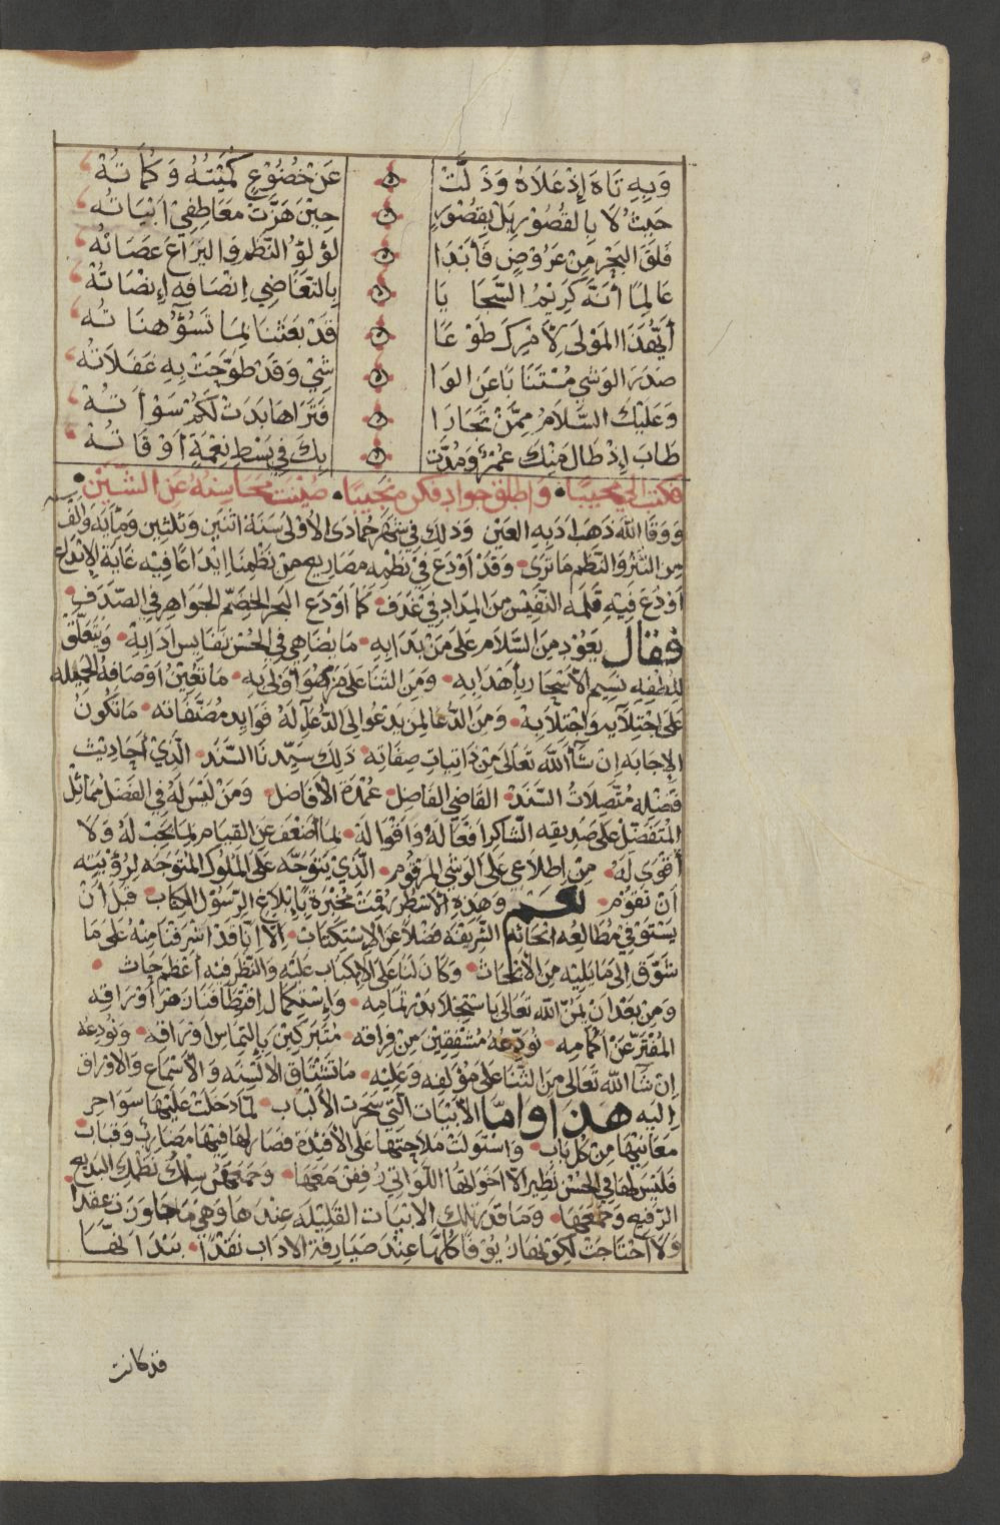 وَبِهِ تَاهَ إِذْ عَلَاهُ وَذَلَّتْ عَنْ خُضُوْعٍ كُمَيْتُهُ وَكُمَاتُهْ
حَيْثُ لَا بِالقُصُوْرِ بَلْ بِقُصُوْرٍ حِيْنَ هَزَّتْ مَعَاطِفِيْ اَبْيَاتُه
فَلَقَ البَحْرَ مِنْ عَرُوْضٍ فَأَبْدَا لُؤلُؤَ النَّظْمِ وَاليَرَاعَ عَصَاتُهُ
عَالِمًا أَنَّهُ كَرِيْمُ السَّجَايَا بِالتَّغَاضِي اِنْصَافُه إِنْصَاتُهْ
أَيُّهَذَا المَوْلَى لِأَمْرِكَ طَوْعًا قَدْ بَعَثْنَا لِمَا تَسُؤُ هَنَاتُه
صَدَرَ الوَشيُ مُسْتَنَابًا عَنِ الوَا شِي وَقَدْ طَوَّحَتْ بِهِ غَفَلَاتُه
وَعَلَيْكَ السَّلَامُ مِمَّنْ تَحَارَا فَتَرَاهَا بَدَتْ لَكُمْ سَوْأَتُهْ
طَابَ إِذْ طَالَ مِنْكَ عُمْرٌ وَمُدَّت بِكَ فِي بَسْطِ نِعْمَةٍ اَوْقَاتُهْ
فكتب الي مجيبًا • وَاطلق جواد فكره نجيبًا • صُيْنَت محَاسِنهُ عَنِ الشَّيْن •
وَوَقَا الله ذهَب ادَبهِ العَيْن وَذلكَ في شهْر جُمادَى الأوْلى سَنَة اثنَين وَثلثِين وَمايَة وَالف
مِن النثْر وَالنظم مَا ترَى • وَقدْ اَوْدَعَ فِيْ نَظمِه مصَاريع مِنْ نظمِنا اِبْدَاعًا فيْه غَايَة الإبْدَاع
اَوْدَعَ فيْهِ قَلمه النَّفِيْس مِنَ المِدَاد فِيْ غَدَف • كَمَا اَوْدَعَ البَحر الخِضَم الجَوَاهِر فِي الصّدَف •
فقال يَعُوْد مِنَ السَّلَام عَلى مَنْ بَدَا بِه • مَا يضَاهِي فِي الحُسْن نفَايِس ادَابِهِ • وَيَتَعَلّق
للطفِه نسِيم الأسْحَار بأَهْدَابِهِ • وَمِنَ الثنَا عَلى مَنْ هُوَ أَوْلَى بِه • مَا تعَيَّن اَوْصَافهُ الجَمِيْله
عَلَى اجْتِلَآيِه وَاجْتِلَابِه • وَمِنَ الدُّعا لِمَن يَدْعُوا الى الدُّعَآء لهُ فوَايد مُصَنَّفَاته • مَا تَكُونُ
الإجَابَه اِن شآ الله تَعَالى مِنْ ذَاتِيات صِفَاتِه • ذَلكَ سَيِّدنَا السَّنَد • الّذِيْ اَحَاديْث
فَضْلِه مُتَّصِلَاتُ السَّنَدْ • القَاضِي الفَاضِل • عُمْدَة الأفَاضِل • وَمَنْ لَيْسَ لهُ فِي الفَضْل مُمَاثِل
المُتَفَضّل عَلَى صَدِيقِه الشّاكِرِ اَفعَالهُ وَاقوَاله • لِمَا أَضْعَفَ عَنِ القِيَام بِمَا يَجِبُ لهُ وَلَا
أَقْوَى لَهُ • مِنْ اِطلَاعِي عَلى الوَشْي المَرقُوم • الّذِيْ يَتوَجّه عَلَى المُلُوك المُتوَجّه لِرُؤْيَتِه
اَنْ تقُوْم • نعَم وَهٰذِهِ الأسْطر رُقمَتْ مُخْبرَةً بِإبْلَاغ الرَّسُوْل الكِتَابَ قَبْلَ اَنْ
يَسْتَوْفي مُطَالَعَة اَبحَاثِه الشَّرِيْفَه فَضْلًا عَنِ الإسْتِكْتَاب • اِلّا اِنَّا قَدْ اَشرَفنَا مِنْهُ عَلى مَا
شَوَّقَ اِلَى مَا يَلِيْه مِنَ الأبْحَاث • وَكَانَ لنَا عَلَى الإكبَاب عَليْه وَالنَّظَر فيْه اَعْظم حَاث •
وَمِنْ بَعْد اَنْ يَمُنَّ الله تَعَالى بِاسْتِجْلَا بَدْر تمَامِه • وَاِسْتِكمَال اِقْتِطَافنَا زَهْرَ أَوْرَاقِه
المُفْتَرّ عَنْ أَكمَامِه • نُوَدِّعُهُ مُشْفِقِيْنَ مِنْ فِرَاقه • مُتَبَرِّكِيْنَ بِالتِمَاس اوْرَاقِه • وَنُوْدِعُه
اِن شآ الله تَعَالى مِنَ الثَّنَا عَلَى مُؤَلِفِه وَعَلَيْه • مَا تَشْتَاق الألْسِنَه وَالأسْمَاع وَالأوْرَاق
اِليَه هَذا وامّا الأَبْيَات الّتِي سَحَرَت الأَلْبَاب • لَمَّا دَخَلَتْ عَلَيْهَا سَوَاحِر
مَعَانِيْهَا مِن كُلّ بَاب • وَاسْتَوْلَتْ مَلَاحَتُهَا عَلَى الأفْئِدَة فَصَارَ لهَا فيْهَا مَضَارِب وَقِبَاب •
فَليْسَ لهَا فِي الحُسْن نَظِير الّا اَخَوَاتُهَا اللوَاتي رُفِفْنَ مَعَهَا • وَجَمَعَهُنَّ سِلكُ نَظْمكَ البَدِيْع
الرَّفيْع وَجَمَعَهَا • وَمَا قَدْر تِلكَ الأبْيَات القَلِيْلَة عِنْدهَا وَهِيَ مَا جَاوَرَتْ عِقدًا
وَلَا احْتَاجَتْ لِكَوْنهَا زيُوْفًا كُلّهَا عِنْدَ صَيَارِفَة الادَاب نَقْدًا • بَيْدَ اَنّهَا
قد كانت